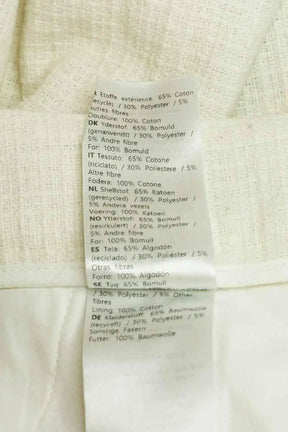 Étoffe extérieure: 65% Coton
(recyclé) / 30% Polyester / 5%
autres fibres
Doublure: 100% Coton
DK Yderstof: 65% Bomuld
(genanvendt) / 30% Polyester /
5% Andre fibre
For: 100% Bomuld
IT Tessuto: 65% Cotone
(riciclato) / 30% Poliestere / 5%
Altre fibre
Fodera: 100% Cotone
NL Shellstof: 65% Katoen
(gerecycled) / 30% Polyester /
5% Andere vezels
Voering: 100% Katoen
NO Ytterstof: 65% Bomull
(resirkulert) / 30% Polyester /
5% Andre fibre
For: 100% Bomull
ES Tela: 65% Algodón
(reciclado) / 30% Poliester / 5%
Otras fibras
Forro: 100% Algodón
SE Tyg: 65% Bomull
/ 30% Polyester / 5% Other
fibres
Lining: 100% Cotton
DE Kleiderstoff: 65% Baumwolle
(recycelt) / 30% Polyester / 5%
Sonstige Fasern
Futter: 100% Baumwolle